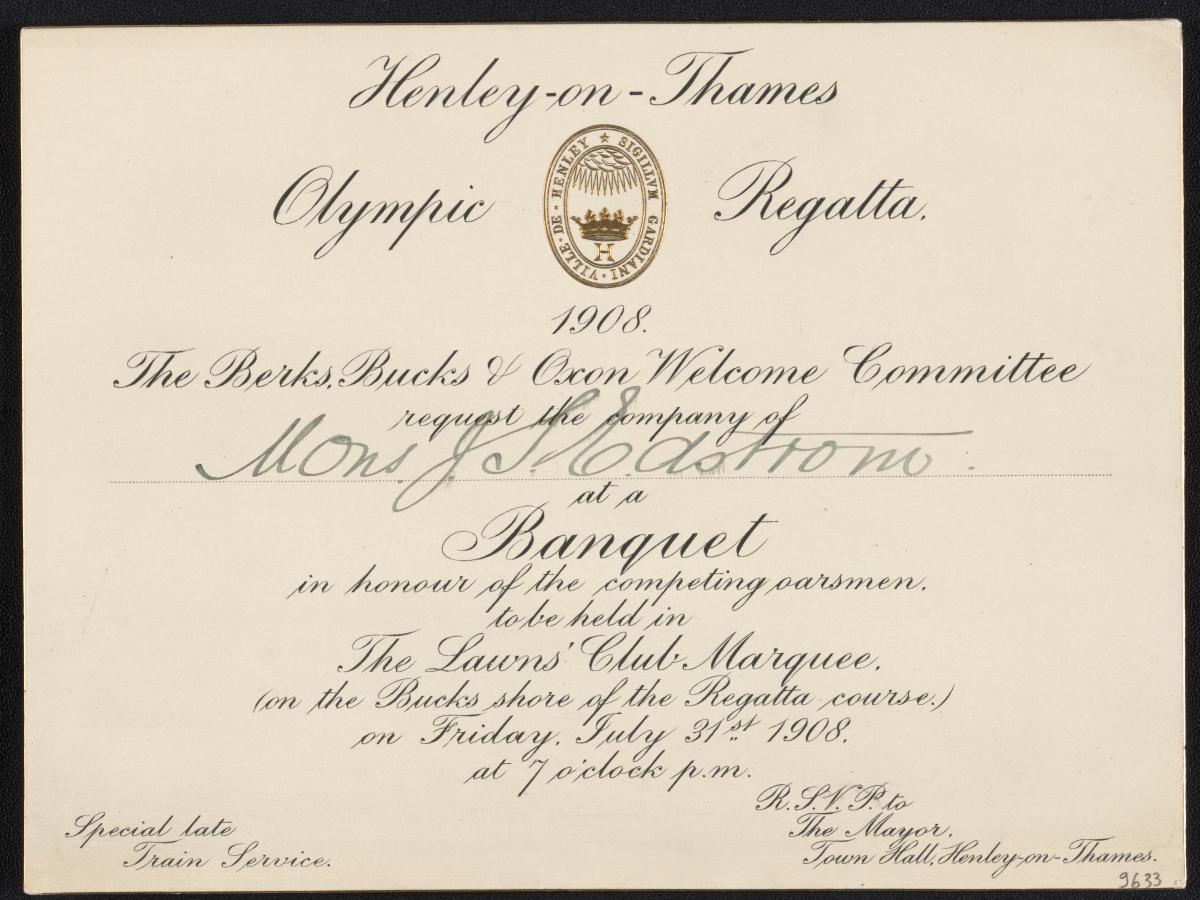 Henley-on-Thames
Olympic Regatta.
SIGILLVM GARDIANI · VILLE · DE · HENLEY
H
1908.
The Berks, Bucks & Oxon Welcome Committee
request the company of
Mons. J. S. Edstrom.
at a
Banquet
in honour of the competing oarsmen.
to be held in
The Lawns' Club Marquee.
(on the Bucks shore of the Regatta course.)
on Friday, July 31st 1908.
at 7 o'clock p.m.
R.S.V.P. to
The Mayor.
Town Hall, Henley-on-Thames.
Special late
Train Service.
9633